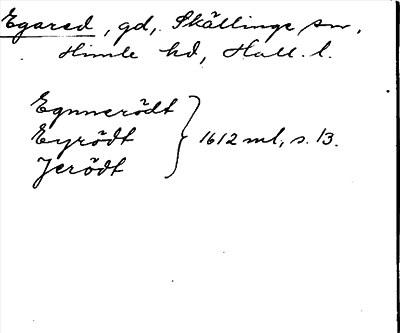 Egared, gd, Skällinge sn,
Himle hd, Hall. l.
Egnnerödt
Eyrödt
Jerödt
1612 ml, s. 13.